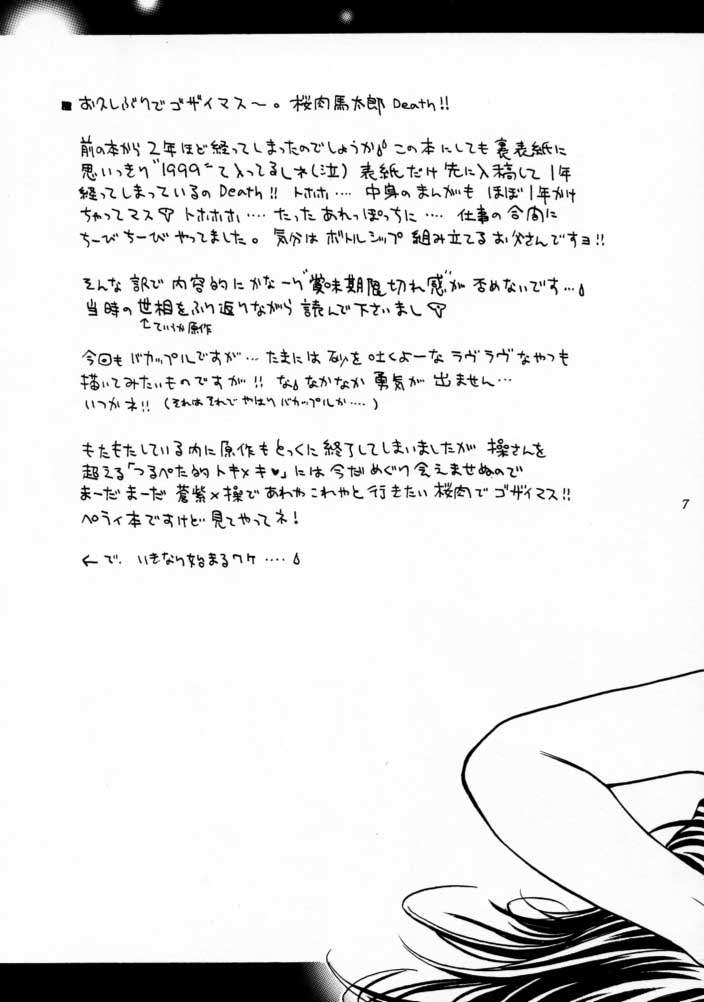 ■ お久しぶりでゴザイマス〜。桜肉馬太郎 Death!!
前の本から2年ほど経ってしまったのでしょうか この本にしても裏表紙に
思いっきり"1999"て入ってるしネ(泣) 表紙だけ先に入稿して1年
経ってしまっているの Death!! トホホ‥‥ 中身のまんがも ほぼ1年かけ
ちゃってマス トホホホ‥‥ たったあれっぽっちに‥‥ 仕事の合間に
ちーびちーびやってました。気分はボトルシップ組み立てるお父さんですヨ!!
そんな訳で内容的にかな〜り"賞味期限切れ感"が否めないです‥・
当時の世相をふり返りながら読んで下さいまし
↑ていうか原作
今回もバカップルですが‥・たまには砂を吐くよーなラヴラヴなやつも
描いてみたいものですが!! な なかなか勇気が出ません‥・
いつかネ!! (それはそれでやはりバカップルか‥‥)
もたもたしている内に原作もとっくに終了してしまいましたが 操さんを
超える「つるぺた的トキメキ♥」には今だめぐり会えませぬので
まーだまーだ 蒼紫×操であれやこれやと行きたい 桜肉でゴザイマス!!
ペライ本ですけど見てやってネ!
← で、いきなり始まるワケ‥‥
7